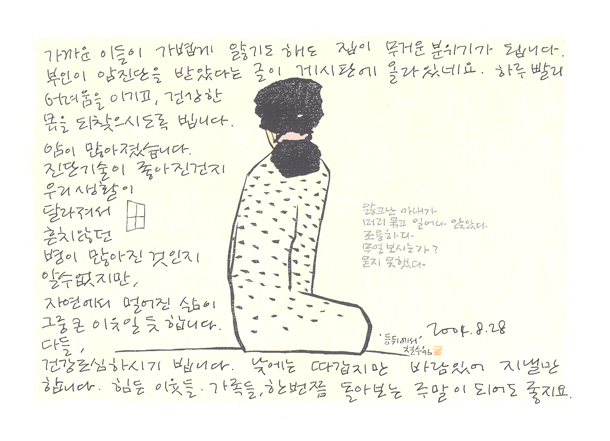 가까운 이들이 가볍게 앓기도 해도 집이 무거운 분위기가 됩니다.
부인이 암진단을 받았다는 글이 게시판에 올라 있네요. 하루 빨리
어려움을 이기고, 건강한
몸을 되찾으시도록 빕니다.
암이 많아졌습니다.
진단기술이 좋아진건지
우리 생활이
달라져서
흔치않던
병이 많아진 것인지
알수없지만,
자연에서 멀어진 삶이
그중 큰 이웃일 듯 합니다.
다들,
건강조심하시기 빕니다. 낮에는 따갑지만 바람있어 지낼만
합니다. 힘든 이웃들. 가족들, 한번쯤 돌아보는 주말이 되어도 좋지요.
앓고난 아내가
머리 묶고 일어나 앉았다.
조용하다.
무얼 보시는가?
묻지 못했다.
'등뒤에서'
철수96
2004.8.28